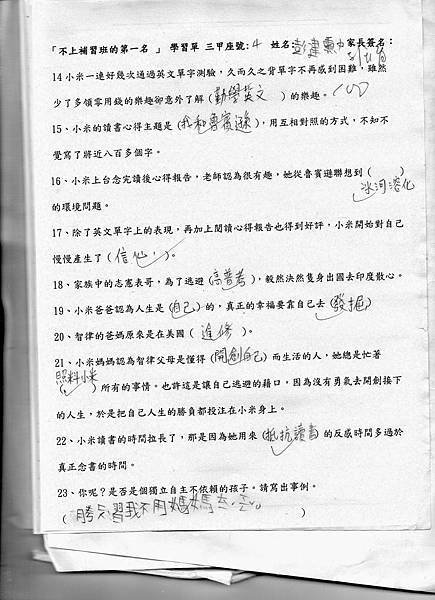 「不上補習班的第一名 」 學習單 三甲座號:4 姓名:彭建 家長簽名:
14 小米一連好幾次通過英文單字測驗，久而久之背單字不再感到困難，雖然
少了多領零用錢的樂趣卻意外了解(勤學英文 )的樂趣。100
15、小米的讀書心得主題是(我和魯賓遜)，用互相對照的方式，不知不
覺寫了將近八百多個字。
16、小米上台念完讀後心得報告，老師認為很有趣，她從魯賓遜聯想到( )
冰河溶化
的環境問題。
17、除了英文單字上的表現，再加上閱讀心得報告也得到好評，小米開始對自己
慢慢產生了(信心)。
18、家族中的志憲表哥，為了逃避(高普考)，毅然決然隻身出國去印度散心。
19、小米爸爸認為人生是(自己)的，真正的幸福要靠自己去(發掘)
20、智律的爸媽原來是在美國( 進修 )。
21、小米媽媽認為智律父母是懂得(開創自己)而生活的人，她總是忙著
照料小米
( )所有的事情。也許這是讓自己逃避的藉口，因為沒有勇氣去開創接下
的人生，於是把自己人生的勝負都投注在小米身上。
22、小米讀書的時間拉長了，那是因為她用來(抵抗讀書 的反感時間多過於
真正念書的時間。
23、你呢？是否是個獨立自主不依賴的孩子。請寫出事例。
( 我不用媽媽 )